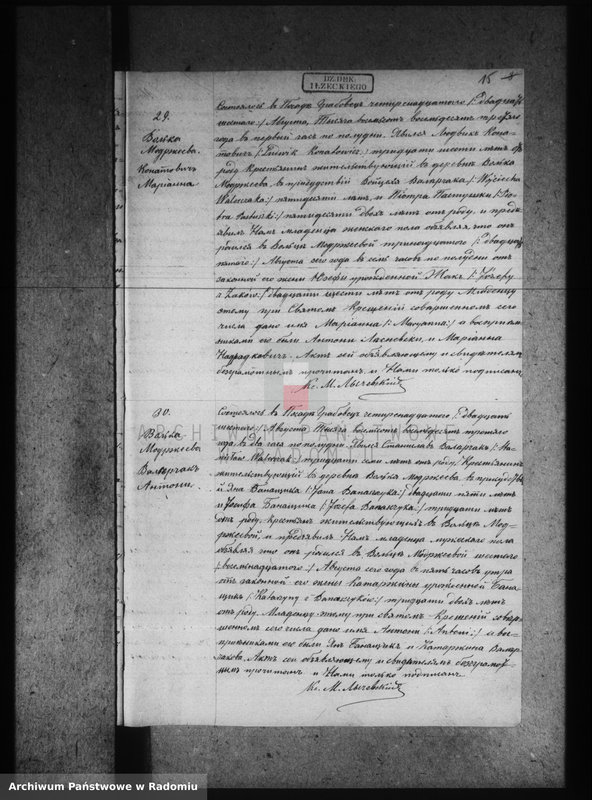 DZIEKAN
IŁŻECKIEGO
15
29.
Волька
Модржева.
Конатовичъ
Маріанна
Состоялось въ Посадѣ Грабовецъ четырнадцатаго /: двадцать
шестого :/ Августа, Тысяча восемьсотъ восемьдесятъ третьяго
года въ первый часъ по полудни. Явился Людвикъ Кона-
товичъ /: Ludwik Konatowicz :/ тридцати шести лѣтъ отъ
роду Крестьянинъ жительствующій въ деревнѣ Волька
Модржева въ присутствіи Войцеха Вальчака /: Wojciecha
Walczaka :/ пятидесяти лѣтъ и Піотра Пастушки /: Pio-
пятидесяти двухъ лѣтъ отъ роду, и предъ-
явилъ Намъ младенца женскаго пола объявляя что онъ
родился въ Вольцѣ Модржевой тринадцатаго /: двадцать
пятаго :/ Августа сего года въ семь часовъ по полудни отъ
законной его жены Юзефы урожденной Жакъ /: Józefy
z Żaków :/ двадцати шести лѣтъ отъ роду. Младенцу
этому при Святомъ Крещеніи совершенномъ сего
числа дано имя Маріанна /: Maryanna :/ а воспріем-
никами его были Антони Ласновски и Маріанна
Актъ сей объявляющему и свидѣтелямъ
безграмотнымъ прочитанъ и Нами только подписанъ
Кс. М. Лычевскій
30.
Волька
Модржева
Вальчакъ
Антони.
Состоялось въ Посадѣ Грабовецъ четырнадцатаго /: двадцать
шестого :/ Августа Тысяча восемьсотъ восемьдесятъ третьяго
года въ два часа по полудни. Явился Станиславъ Вальчакъ /: Sta-
nisław Walczak :/ тридцати семи лѣтъ отъ роду, Крестьянинъ
жительствующій въ деревнѣ Волька Модржева въ присутствіи
Яна Банащика /: Jana Banaszczyka :/ двадцати пяти лѣтъ
и Юзефа Банащика /: Józefa Banaszczyka :/ тридцати лѣтъ
отъ роду, крестьянъ жительствующихъ въ Вольцѣ Мод-
ржевой, и предъявилъ Намъ младенца мужескаго пола
объявляя что онъ родился въ Вольцѣ Модржевой шестого
/: восемнадцатаго :/ Августа сего года въ пять часовъ утра
отъ законной его жены Катаржины урожденной Бана-
щикъ /: Katarzyny z Banaszczyków :/ тридцати двухъ лѣтъ
отъ роду. Младенцу этому при святомъ Крещеніи совер-
шенномъ сего числа дано имя Антони /: Antoni :/ а вос-
пріемниками его были Янъ Банащикъ и Катаржина Вальча-
кова. Актъ сей объявляющему и свидѣтелямъ безграмот-
нымъ прочитанъ и Нами только подписанъ
Кс. М. Лычевскій
Archiwum Państwowe w Radomiu